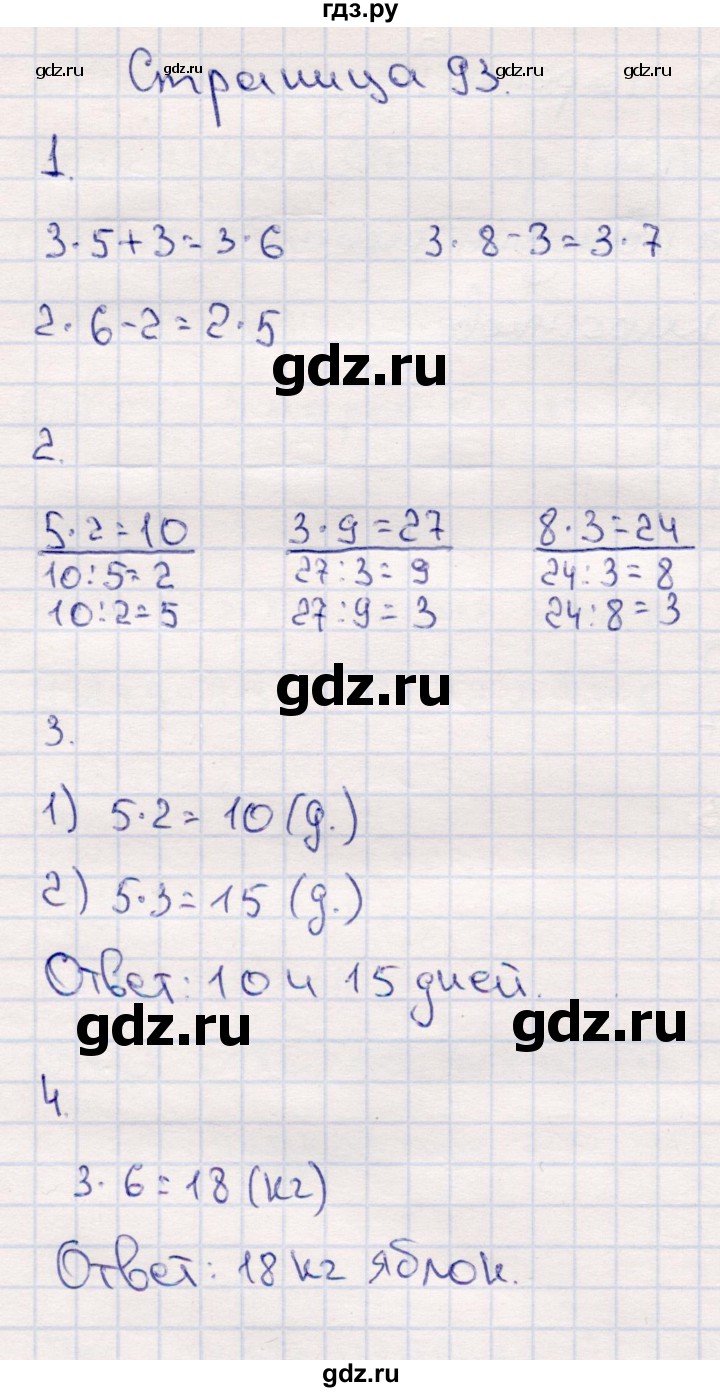 гдз.ру
gdz.ru gdz.ru gdz.ru gdz.ru
Страница 93.
1.
3·5+3=3·6 3·8-3=3·7
2·6-2=2·5
gdz.ru
2.
5·2=10 3·9=27 8·3=24
10:5=2 27:3=9 24:3=8
10:2=5 27:9=3 24:8=3
gdz.ru
3.
1) 5·2=10 (д.)
2) 5·3=15 (д.)
Ответ: 10 и 15 дней.
gdz.ru gdz.ru
4.
3·6=18 (кг)
Ответ: 18 кг яблок.
gdz.ru